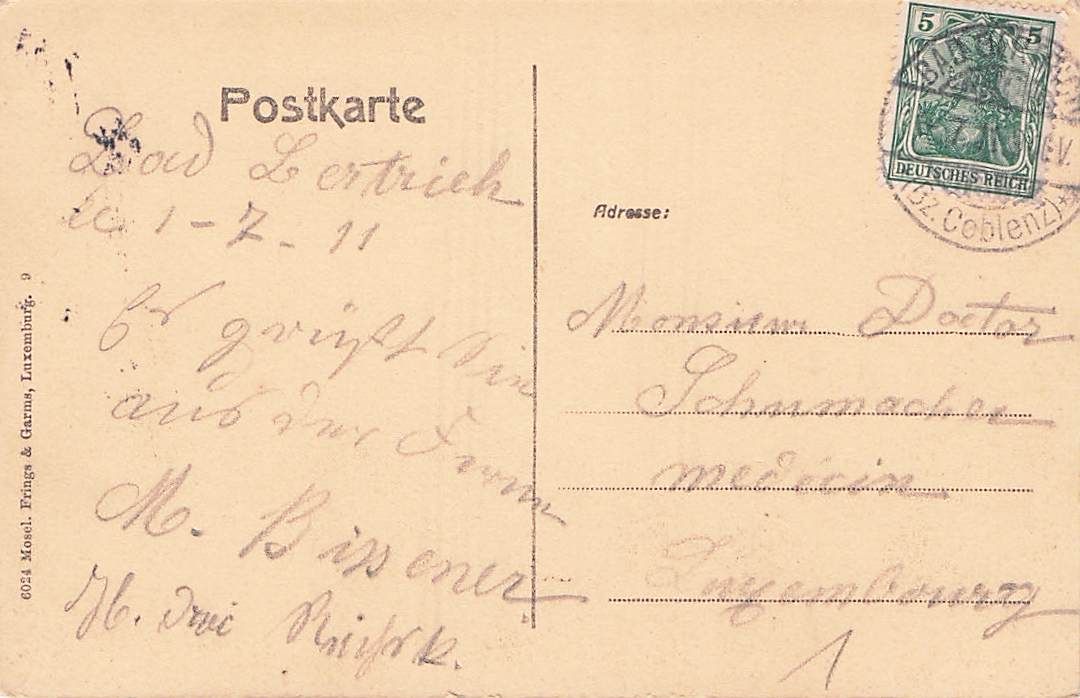 Postkarte
Bad Bertrich
le 1-7-11
Es grüßt Sie
aus der Ferne
M. Bissener
H. drei
6024 Mosel. Frings & Garms, Luxemburg. 9
5 5
DEUTSCHES REICH
BAD BERTRICH
(Bz. Coblenz)
Adresse:
Monsieur Doctor
Schumacher
medicin
Luxembourg
1